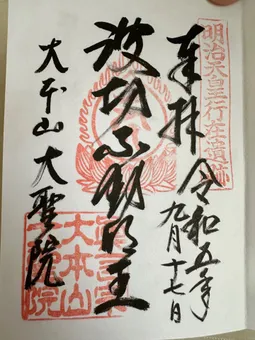 明治天皇行在遺跡
奉拝 令和五年
九月十七日
波切不動明王
大本山 大聖院
真言宗
大本山
大聖院